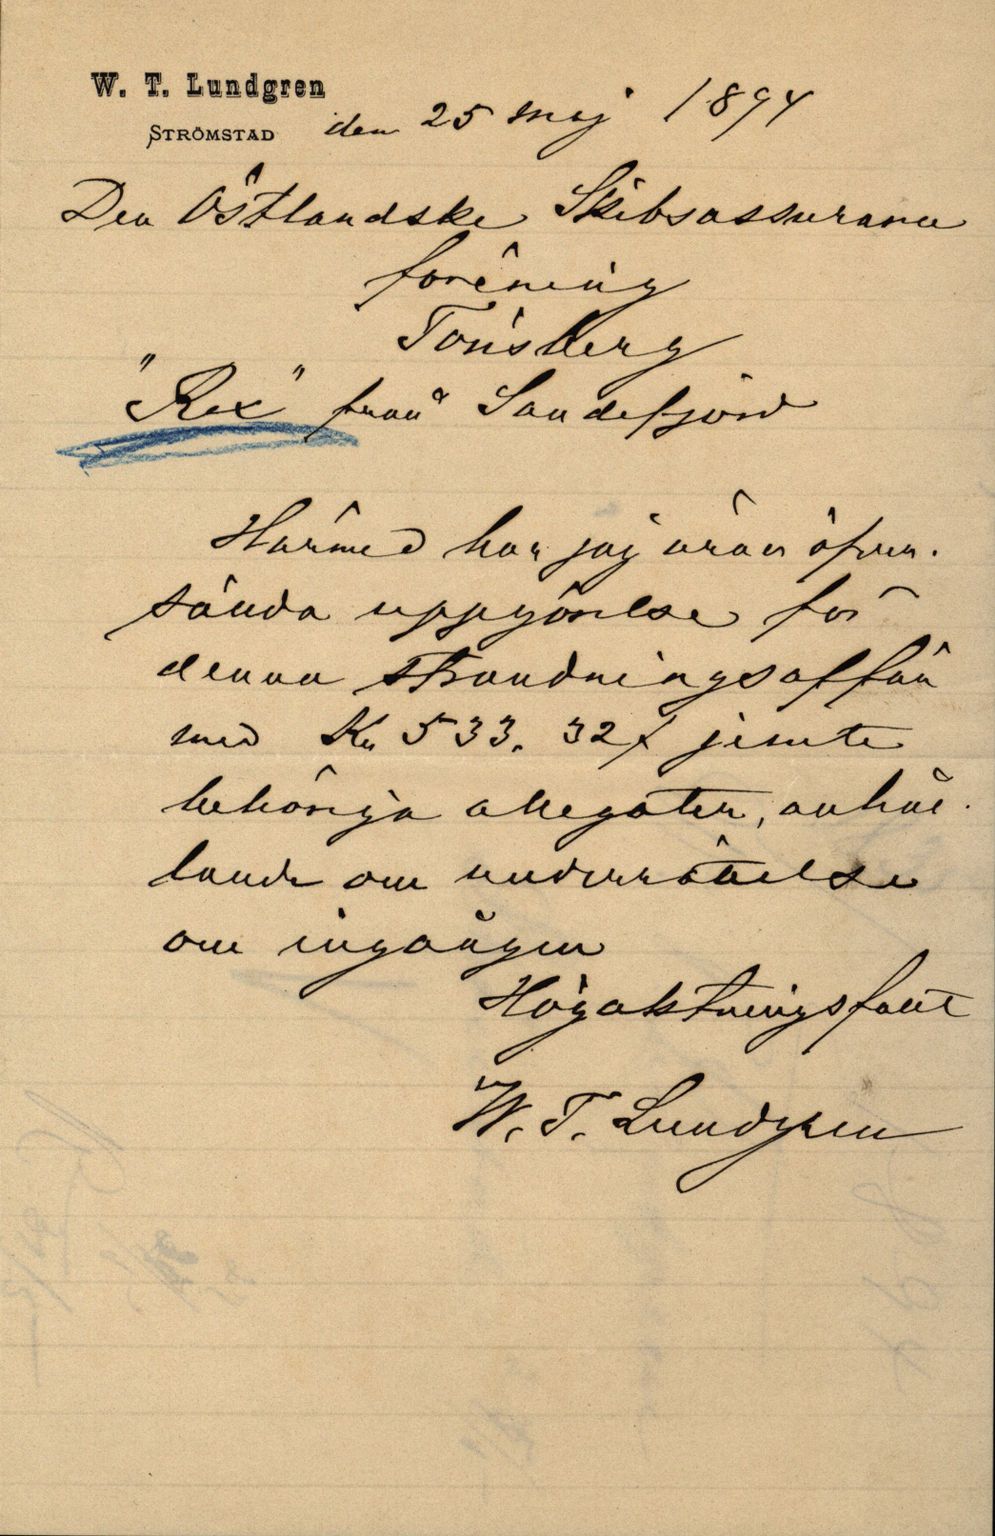 W. T. Lundgren
STRÖMSTAD den 25 maj 1894
Den Östlandske Skibsassurance
forêning
Tönsberg
"Rex" från Sandefjord
Härmed har jag äran öfver-
sända uppgörelse för
denna strandningsaffär
med Kr 533. 32 jemte
behöriga allegater, anhål-
lande om underrättelse
om ingången
Högaktningsfullt
W. T. Lundgren